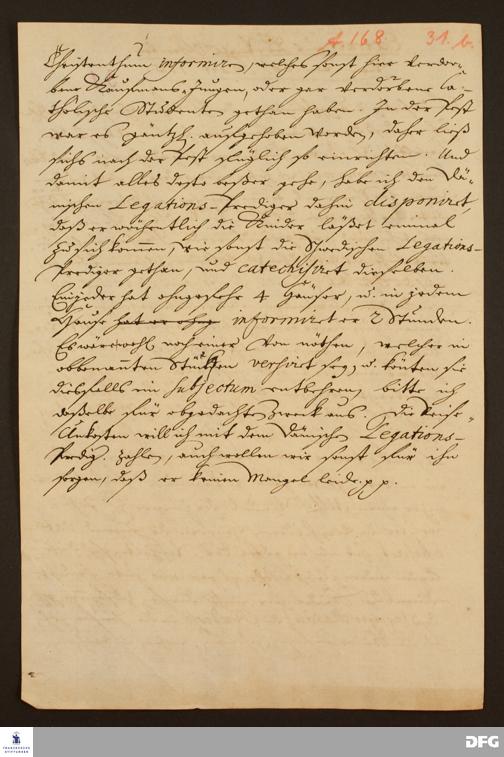 A. 168 31. b.
Christenthum informiren, welches sonst hier verdor-
bene Kaufmans-Jungen, oder gar verdorbene Ca-
tholische Studenten gethan haben. In der Pest
war es gantz aufgehoben worden, daher ließ
sichs nach der Pest füglich so einrichten. Und
damit alles desto beßer gehe, habe ich den Dä-
nischen Legations-Prediger dahin disponiret,
daß er wöchentlich die Kinder läßet einmal
zu sich kommen, wie sonst die Schwedischen Legations-
Prediger gethan, und catechisiret dieselben.
Ein jeder hat ohngefehr 4 Häuser, u. in jedem
Hause hat er ohng informiret er 2 Stunden.
Es wäre wohl noch einer von nöthen, welcher in
obbenannten Stücken versiret sey, u. könten sie
diesfalls ein subjectum entbehren, bitte ich
daßelbe für obgedachten Zweck aus. Die Reise-
Unkosten will ich mit dem Dänischen Legations-
Predig. zahlen, auch wollen wir sonst für ihn
sorgen, daß er keinen Mangel leide. p. p.
FRANCKESCHE
STIFTUNGEN
DFG